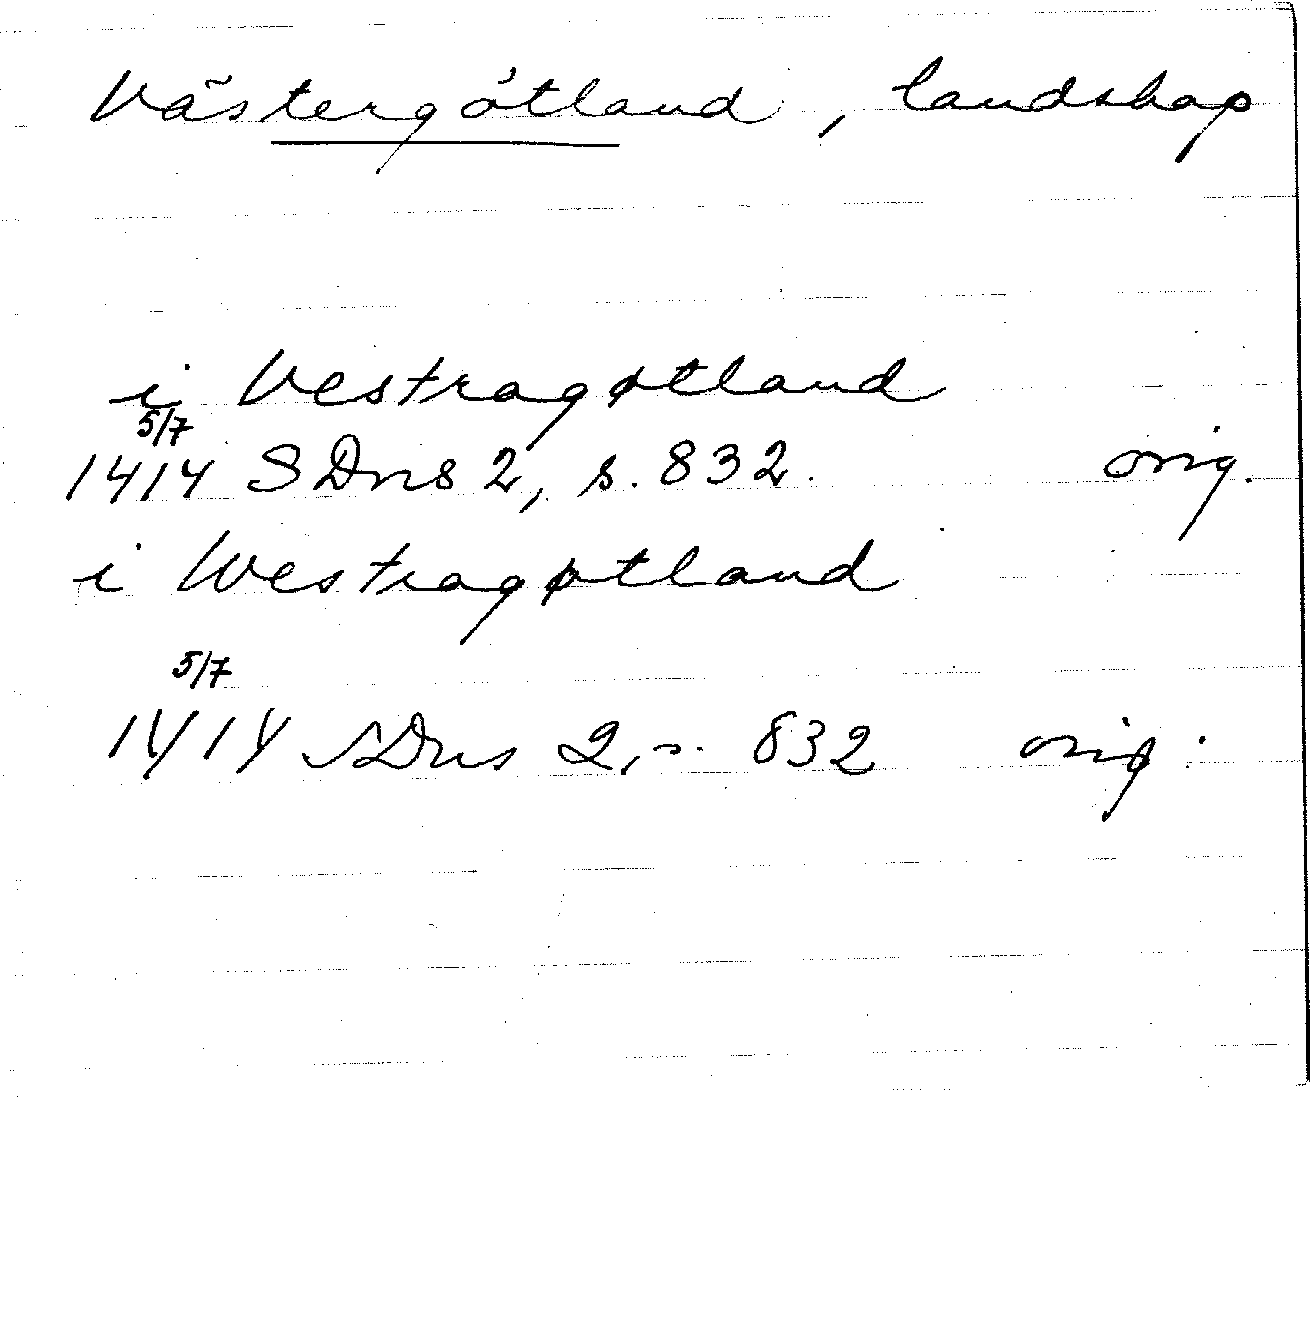 Västergötland, landskap
i Vestragøtland
5/7
1414 SDns 2, s. 832. orig.
i Westragøtland
5/7
1414 SDns 2, s. 832 orig.